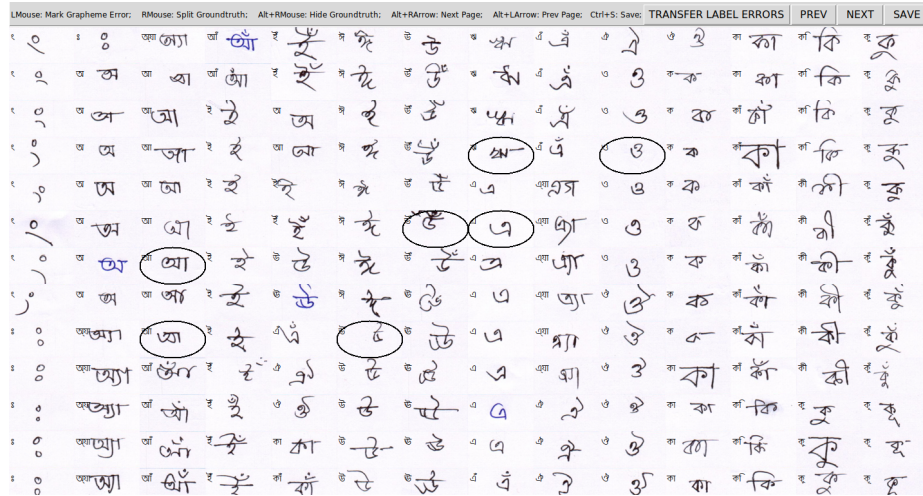 LMouse: Mark Grapheme Error; RMouse: Split Groundtruth; Alt+RMouse: Hide Groundtruth; Alt+RArrow: Next Page; Alt+LArrow: Prev Page; Ctrl+S: Save; TRANSFER LABEL ERRORS PREV NEXT SAVE
ং ং ঃ ঃ অ্যা অ্যা আঁ আঁ ইঁ ইঁ ঈ ঈ উ উ ঋ ঋ এঁ এঁ ঐ ঐ ঔ ঔ কা কা কি কি কু কু
ং ং অ অ আ আ আঁ আঁ ইঁ ইঁ ঈ ঈ উঁ উঁ ঋ ঋ এঁ এঁ ও ও ক ক কা কা কি কি কু কু
ং ং অ অ আ আ ই ই অ অ ঈ ঈ উঁ উঁ ঋ ঋ এঁ এঁ ও ও ক ক কাঁ কাঁ কি কি কু কু
ং ং অ অ আ আ ই ই আ আ ঈ ঈ উঁ উঁ ঋ এঁ এঁ ও ক ক কাঁ কা কি কি কু কু
ং ং অ অ আ আ ই ই ঈ ঈ উঁ উঁ এ এ এ্যা ও ও ক ক কাঁ কাঁ কী কী কু কু
ং ং অ অ আ আ ই ই ইঁ ইঁ ঈ ঈ উঁ উঁ এ এ্যা এ্যা ও ও ক ক কাঁ কাঁ কী কী কুঁ কুঁ
ং ং অ অ আ ই ই উ উ ঈ ঈ উঁ উঁ এ এ এ্যা এ্যা ও ও ক ক কাঁ কাঁ কী কী কুঁ কুঁ
ং ং অ অ আ আ ই ই ঊ ঊ ঈ ঈ ঊ ঊ এ এ এ্যা এ্যা ও ক ক কাঁ কাঁ কী কী কুঁ কুঁ
ঃ ঃ অ্যা অ্যা আ ই ই এঁ এঁ উ ঊ ঊ এ এ এ্যা এ্যা ও ক ক কাঁ কাঁ কী কী কুঁ কুঁ
ঃ ঃ অ্যা অ্যা আঁ আঁ ইঁ ঐ ঐ উ উ ঊ ঊ এ এ এ্যা এ্যা ঔ ঔ কা কা কাঁ কাঁ কী কী কুঁ কুঁ
ঃ ঃ অ্যা অ্যা আঁ আঁ ইঁ ইঁ ঔ ঔ উ উ ঊ ঊ এ এ ঐ ঐ ঔ ঔ কা কা কি কি কু কু কূ কূ
ঃ ঃ অ্যা অ্যা আঁ আঁ ইঁ ইঁ কা কা উ উ ঊ ঊ এ এ ঐ ঐ ঔ ঔ কা কা কি কি কু কু কূ
ঃ ঃ অ্যা অ্যা আঁ আঁ ইঁ ইঁ কাঁ কাঁ উ উ ঊ ঊ এঁ এঁ ঐ ঐ ঔ ঔ কা কা কি কি কু কু কূ